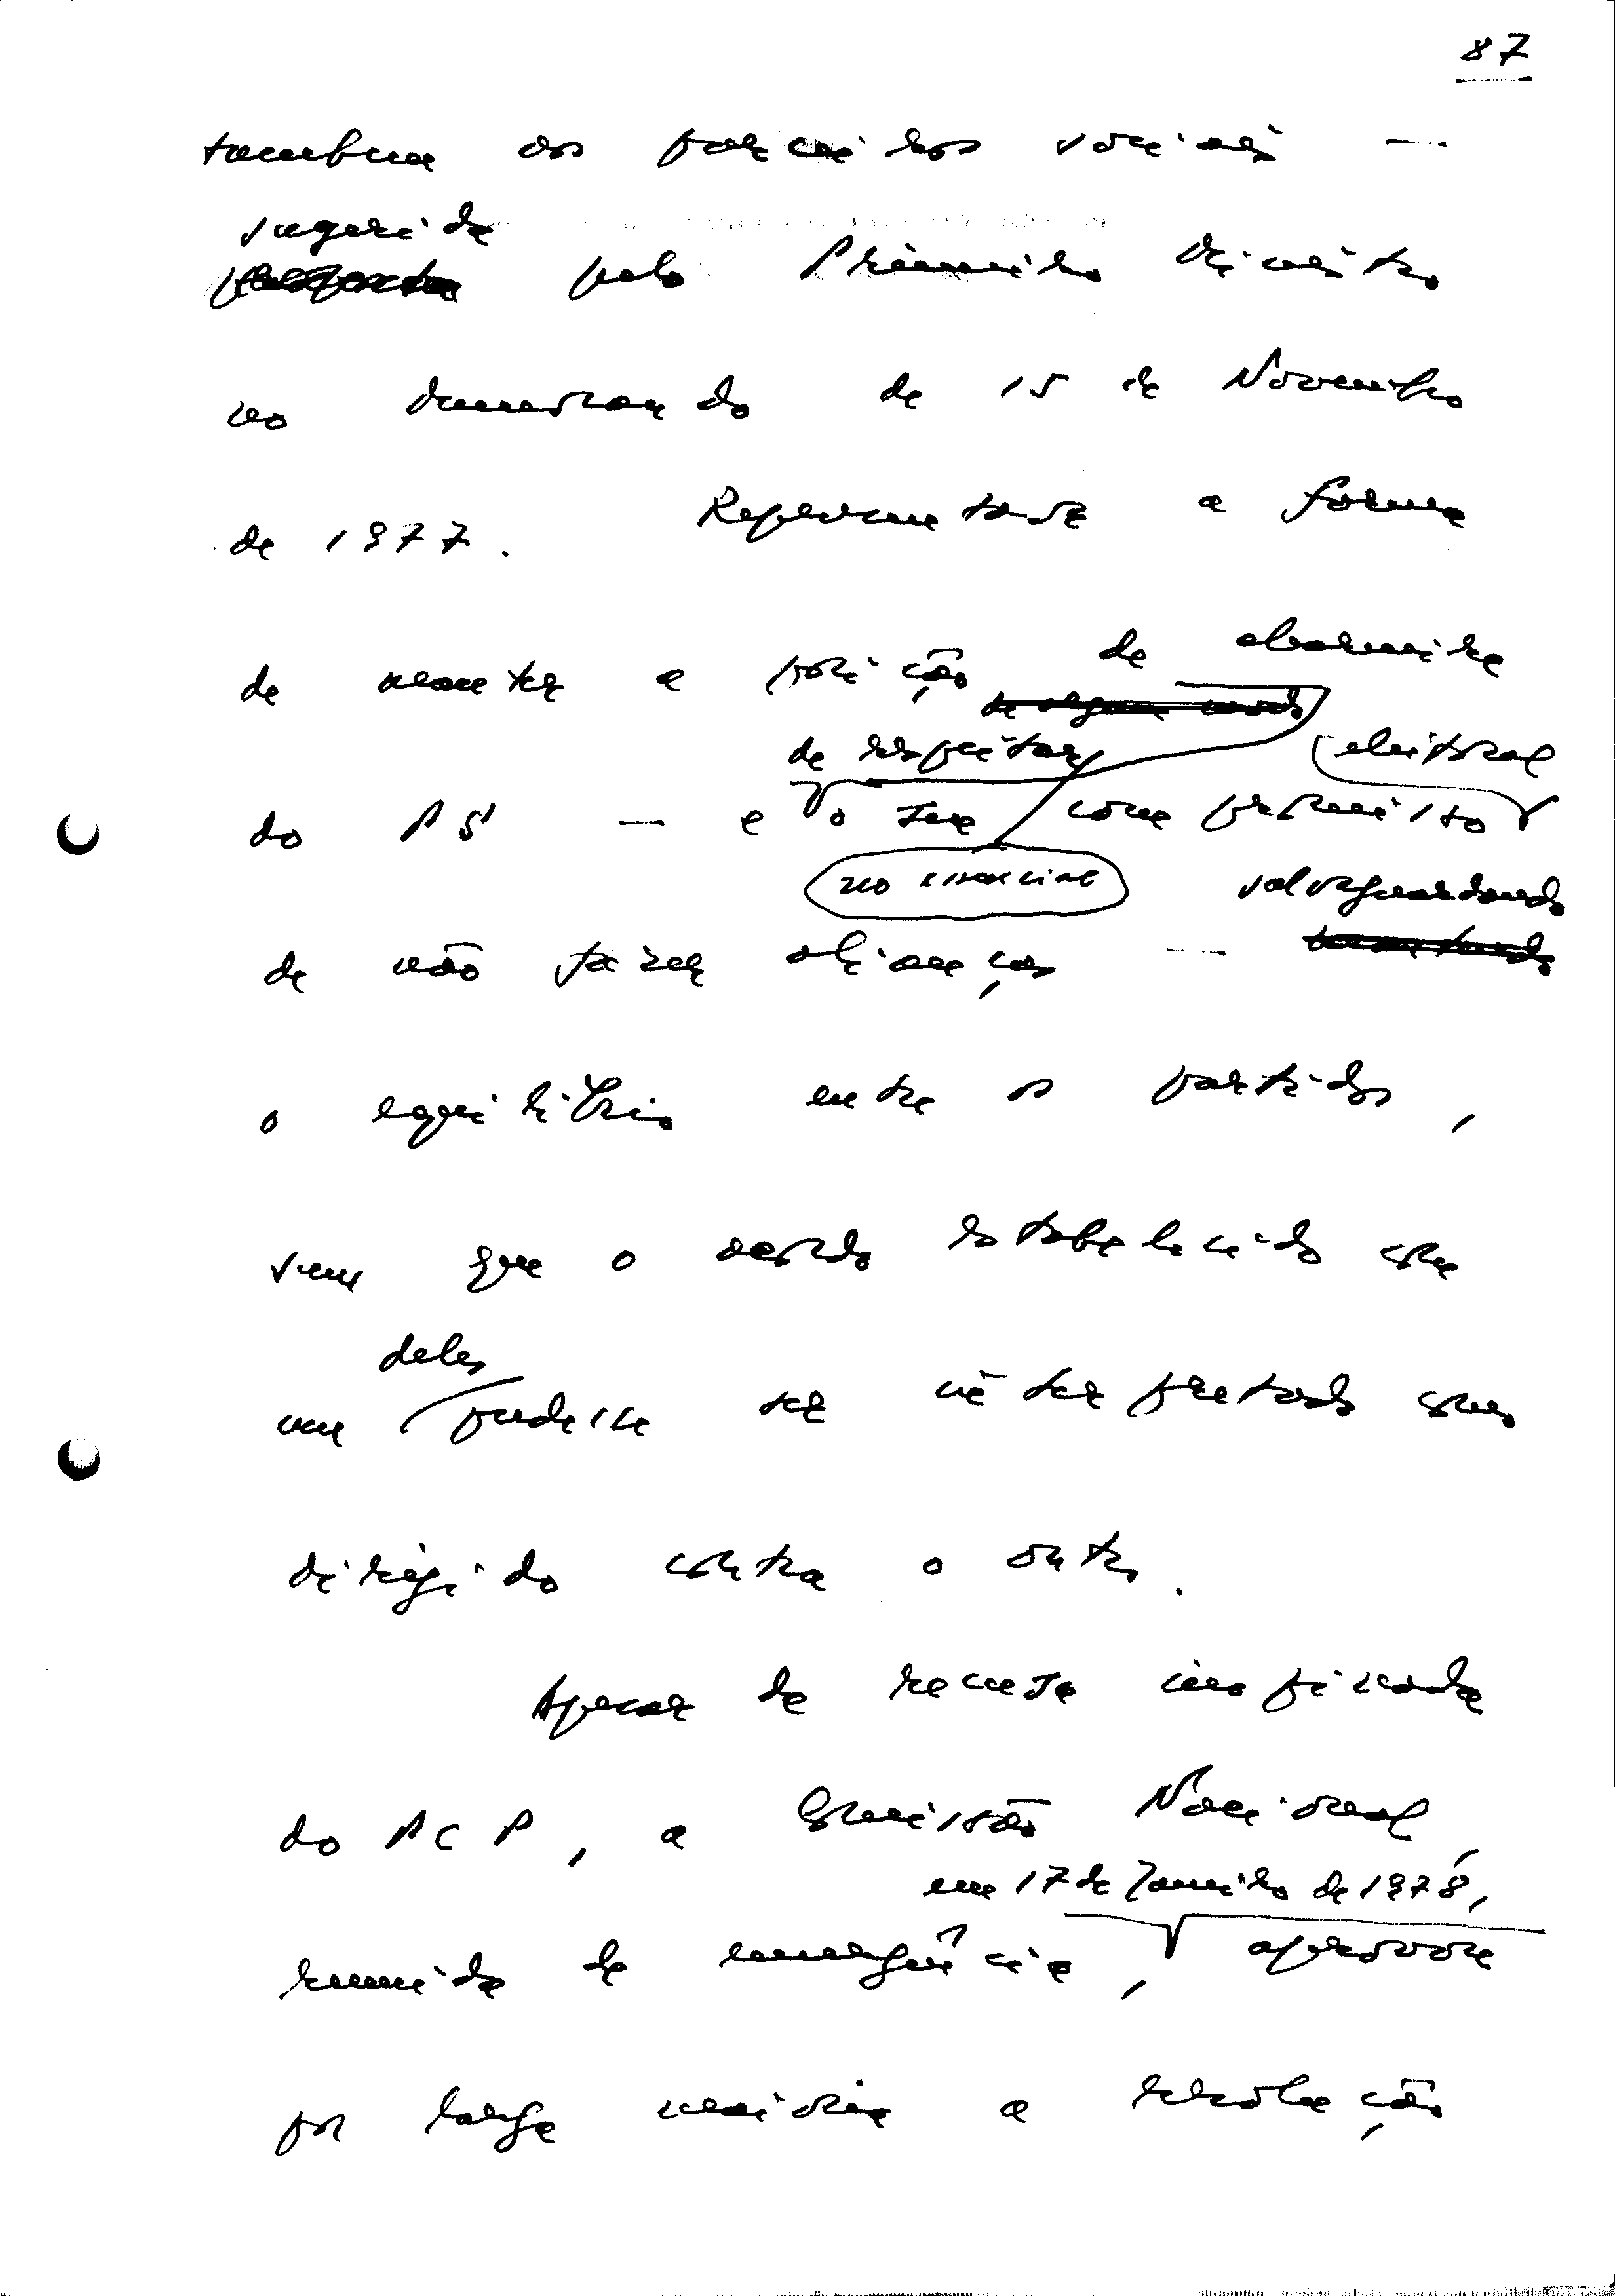 87
também aos parceiros sociais —
sugerida
proposta pelo Primeiro Ministro
no memorando de 15 de Novembro
de 1977. Representava a forma
de manter a posição de charneira
de respeitar eleitoral
do PS — e o seu compromisso
no essencial salvaguardando
de não fazer alianças —
o equilíbrio entre os partidos,
sem que o acordo estabelecido com
deles
um pudesse ser interpretado como
dirigido contra o outro.
Apesar da recusa inopinada
do PCP, a Comissão Nacional,
em 17 de Janeiro de 1978,
reunida de emergência, aprovou
por larga maioria a resolução